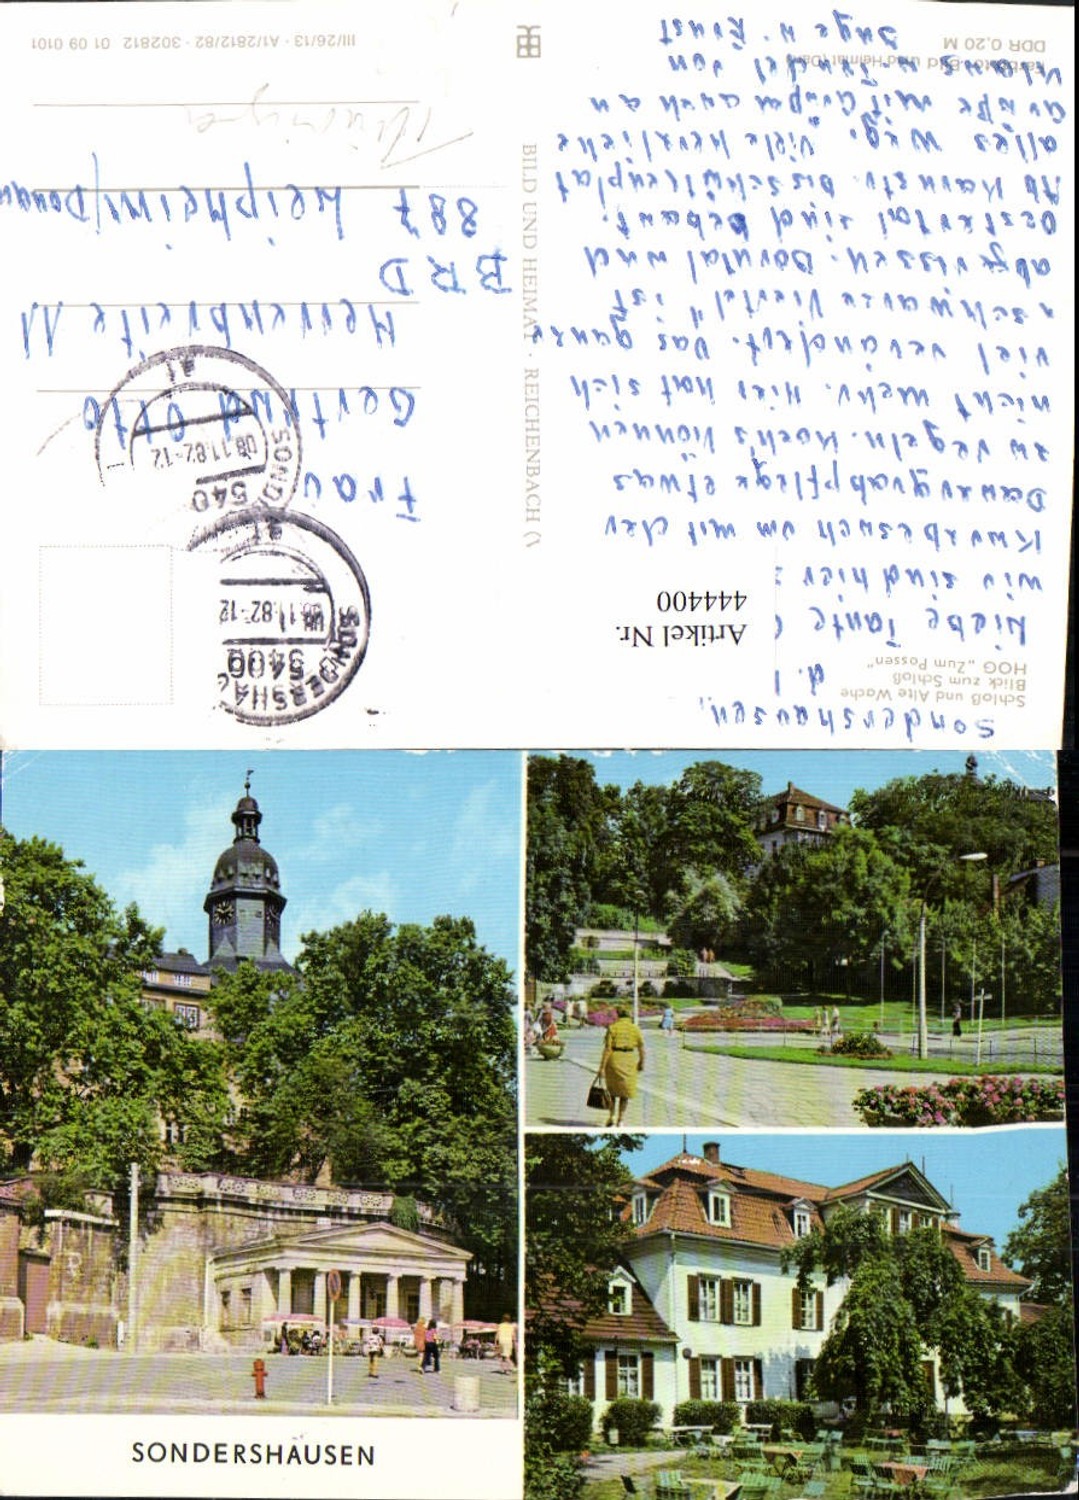 Sondershausen,
d.
Schloß und Alte Wache
Blick zum Schloß
HOG „Zum Possen"
Liebe Tante
wir sind hier z
Kurzbesuch um mit der
Dauergrabpflege etwas
zu regeln. Koch's können
nicht mehr. Hier hat sich
viel verändert. Das ganze
"schwarze Viertel" ist
abgerissen. Borntal und
Östertal sind bebaut.
Ab Karnstr. bis Schützenplat
alles weg. Viele herzliche
Grüße mit Grüßen auch an
Klaus u. von
Inge u. Ernst
Farbfoto: Bild und Heimat
DDR 0,20 M
Artikel Nr.
444400
BILD UND HEIMAT · REICHENBACH (V
Frau
Gertrud Otto
Herrenbreite 11
BRD
887 Leipheim/Donau
Thüringen
SONDERSHA
5400
08.11.82-12
SOND
540
08.11.82-12
III/26/13 · A1/2812/82 · 302812 01 09 0101
SONDERSHAUSEN